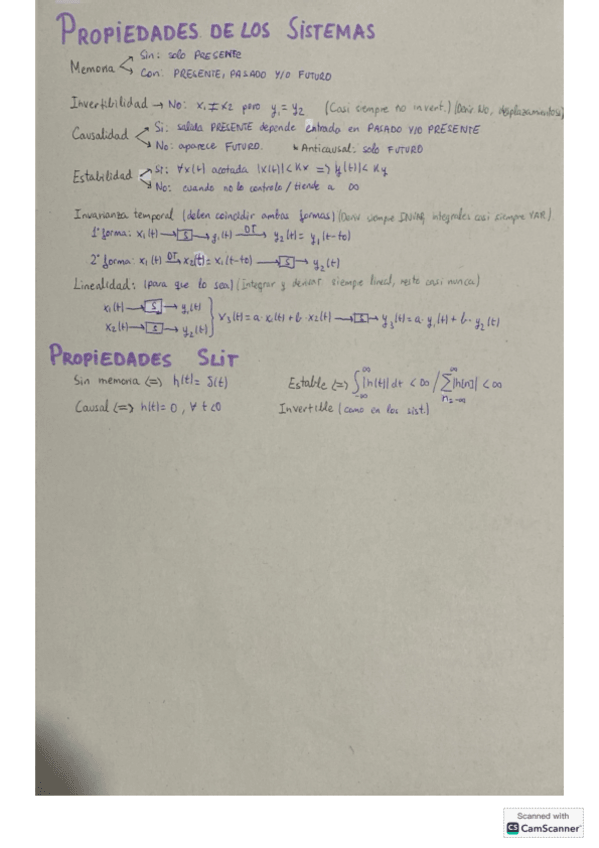 PROPIEDADES DE LOS SISTEMAS
Memoria
Sin: solo PRESENTE
Con: PRESENTE, PASADO Y/O FUTURO
Invertibilidad → No: x₁ ≠ x₂ pero y₁ = y₂ (Casi siempre no invert.) (Deriv. No, desplazamientos)
Causalidad
Si: salida PRESENTE depende entrada en PASADO Y/O PRESENTE
No: aparece FUTURO. ↳ Anticausal: solo FUTURO
Estabilidad
Si: ∀x(t) acotada |x(t)| < Kx => y(t) < Ky
No: cuando no lo controlo / tiende a ∞
Invarianza temporal (deben coincidir ambas formas) (Deriv siempre INVAR, integrales casi siempre VAR)
1ª forma: x₁(t) → S → y₁(t) DT→ y₂(t) = y₁(t-to)
2ª forma: x₁(t) DT→ x₂(t) = x₁(t-to) → S → y₂(t)
Linealidad: (para que lo sea) (Integrar y derivar siempre lineal, resto casi nunca)
x₁(t) → S → y₁(t)
x₂(t) → S → y₂(t)
x₃(t) = a·x₁(t) + b·x₂(t) → S → y₃(t) = a·y₁(t) + b·y₂(t)
PROPIEDADES SLIT
Sin memoria <=> h(t) = δ(t)
Estable <=> ∫_{-∞}^{∞} |h(t)| dt < ∞ / ∑_{n=-∞}^{∞} |h[n]| < ∞
Causal <=> h(t) = 0, ∀ t<0
Invertible (como en los sist.)
Scanned with
CS CamScanner